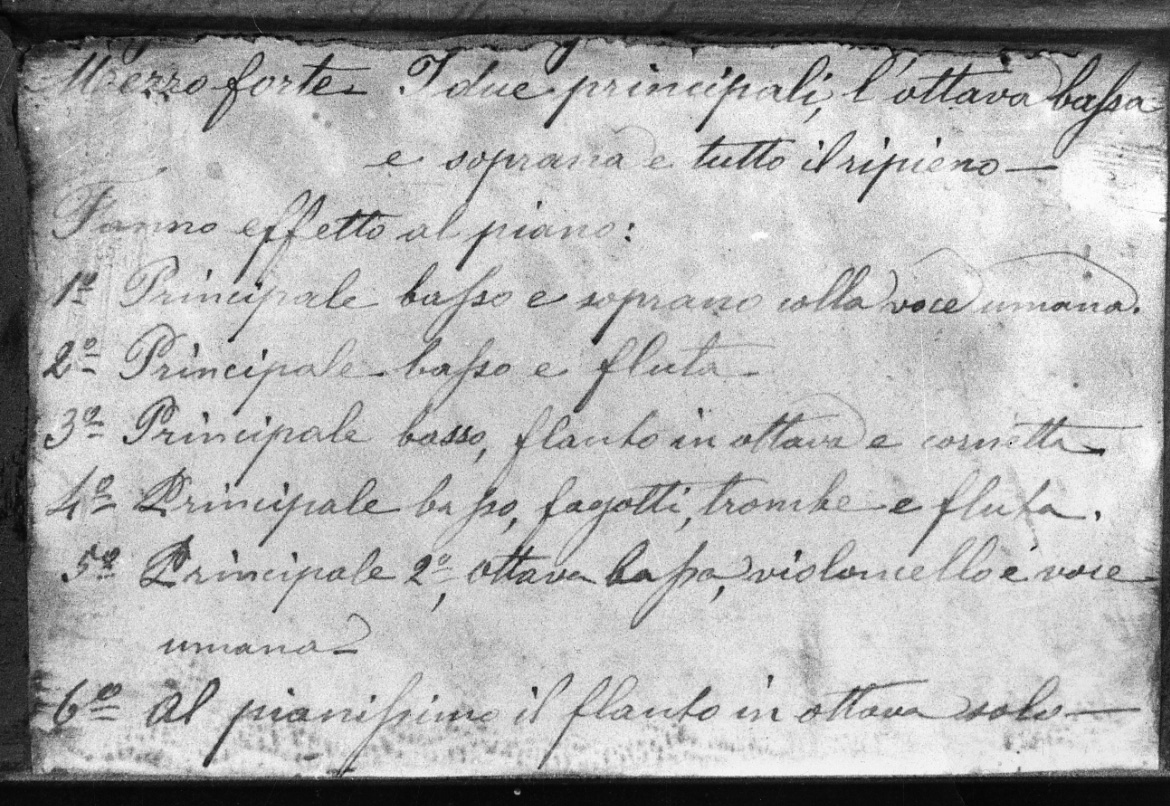 Mezzo forte I due principali, l'ottava bassa
e soprana e tutto il ripieno —
Fanno effetto al piano:
1º Principale basso e soprano colla voce umana.
2º Principale basso e fluta
3º Principale basso, flauto in ottava e cornetta
4º Principale basso, fagotti, trombe e fluta.
5º Principale 2º, ottava bassa, violoncello e voce
umana
6º Al pianissimo il flauto in ottava solo —